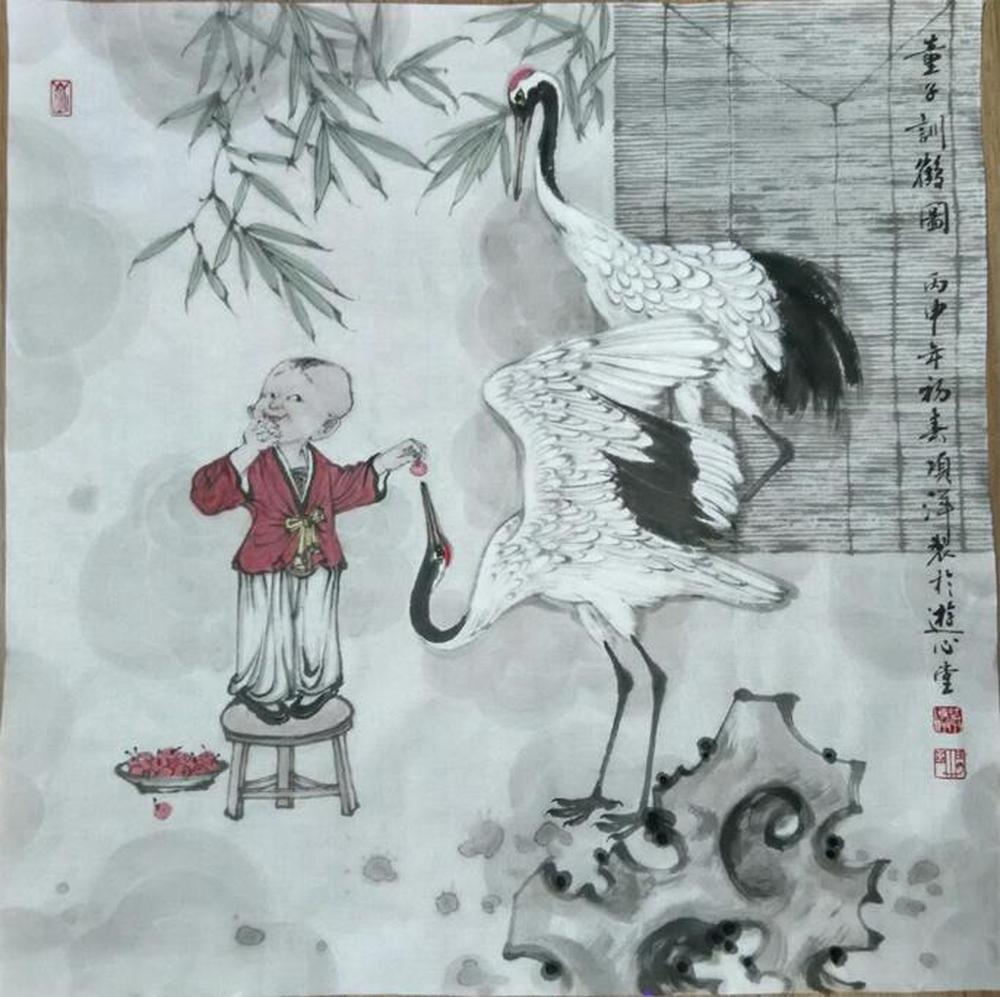 童子訓鶴圖 丙申年初春項洋製於遊心堂